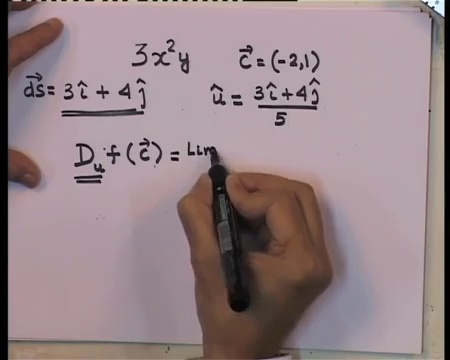 3x²y    c⃗ = (-2,1)
d⃗s = 3î + 4ĵ    û = (3î+4ĵ)/5
D_u f(c⃗) = Lim